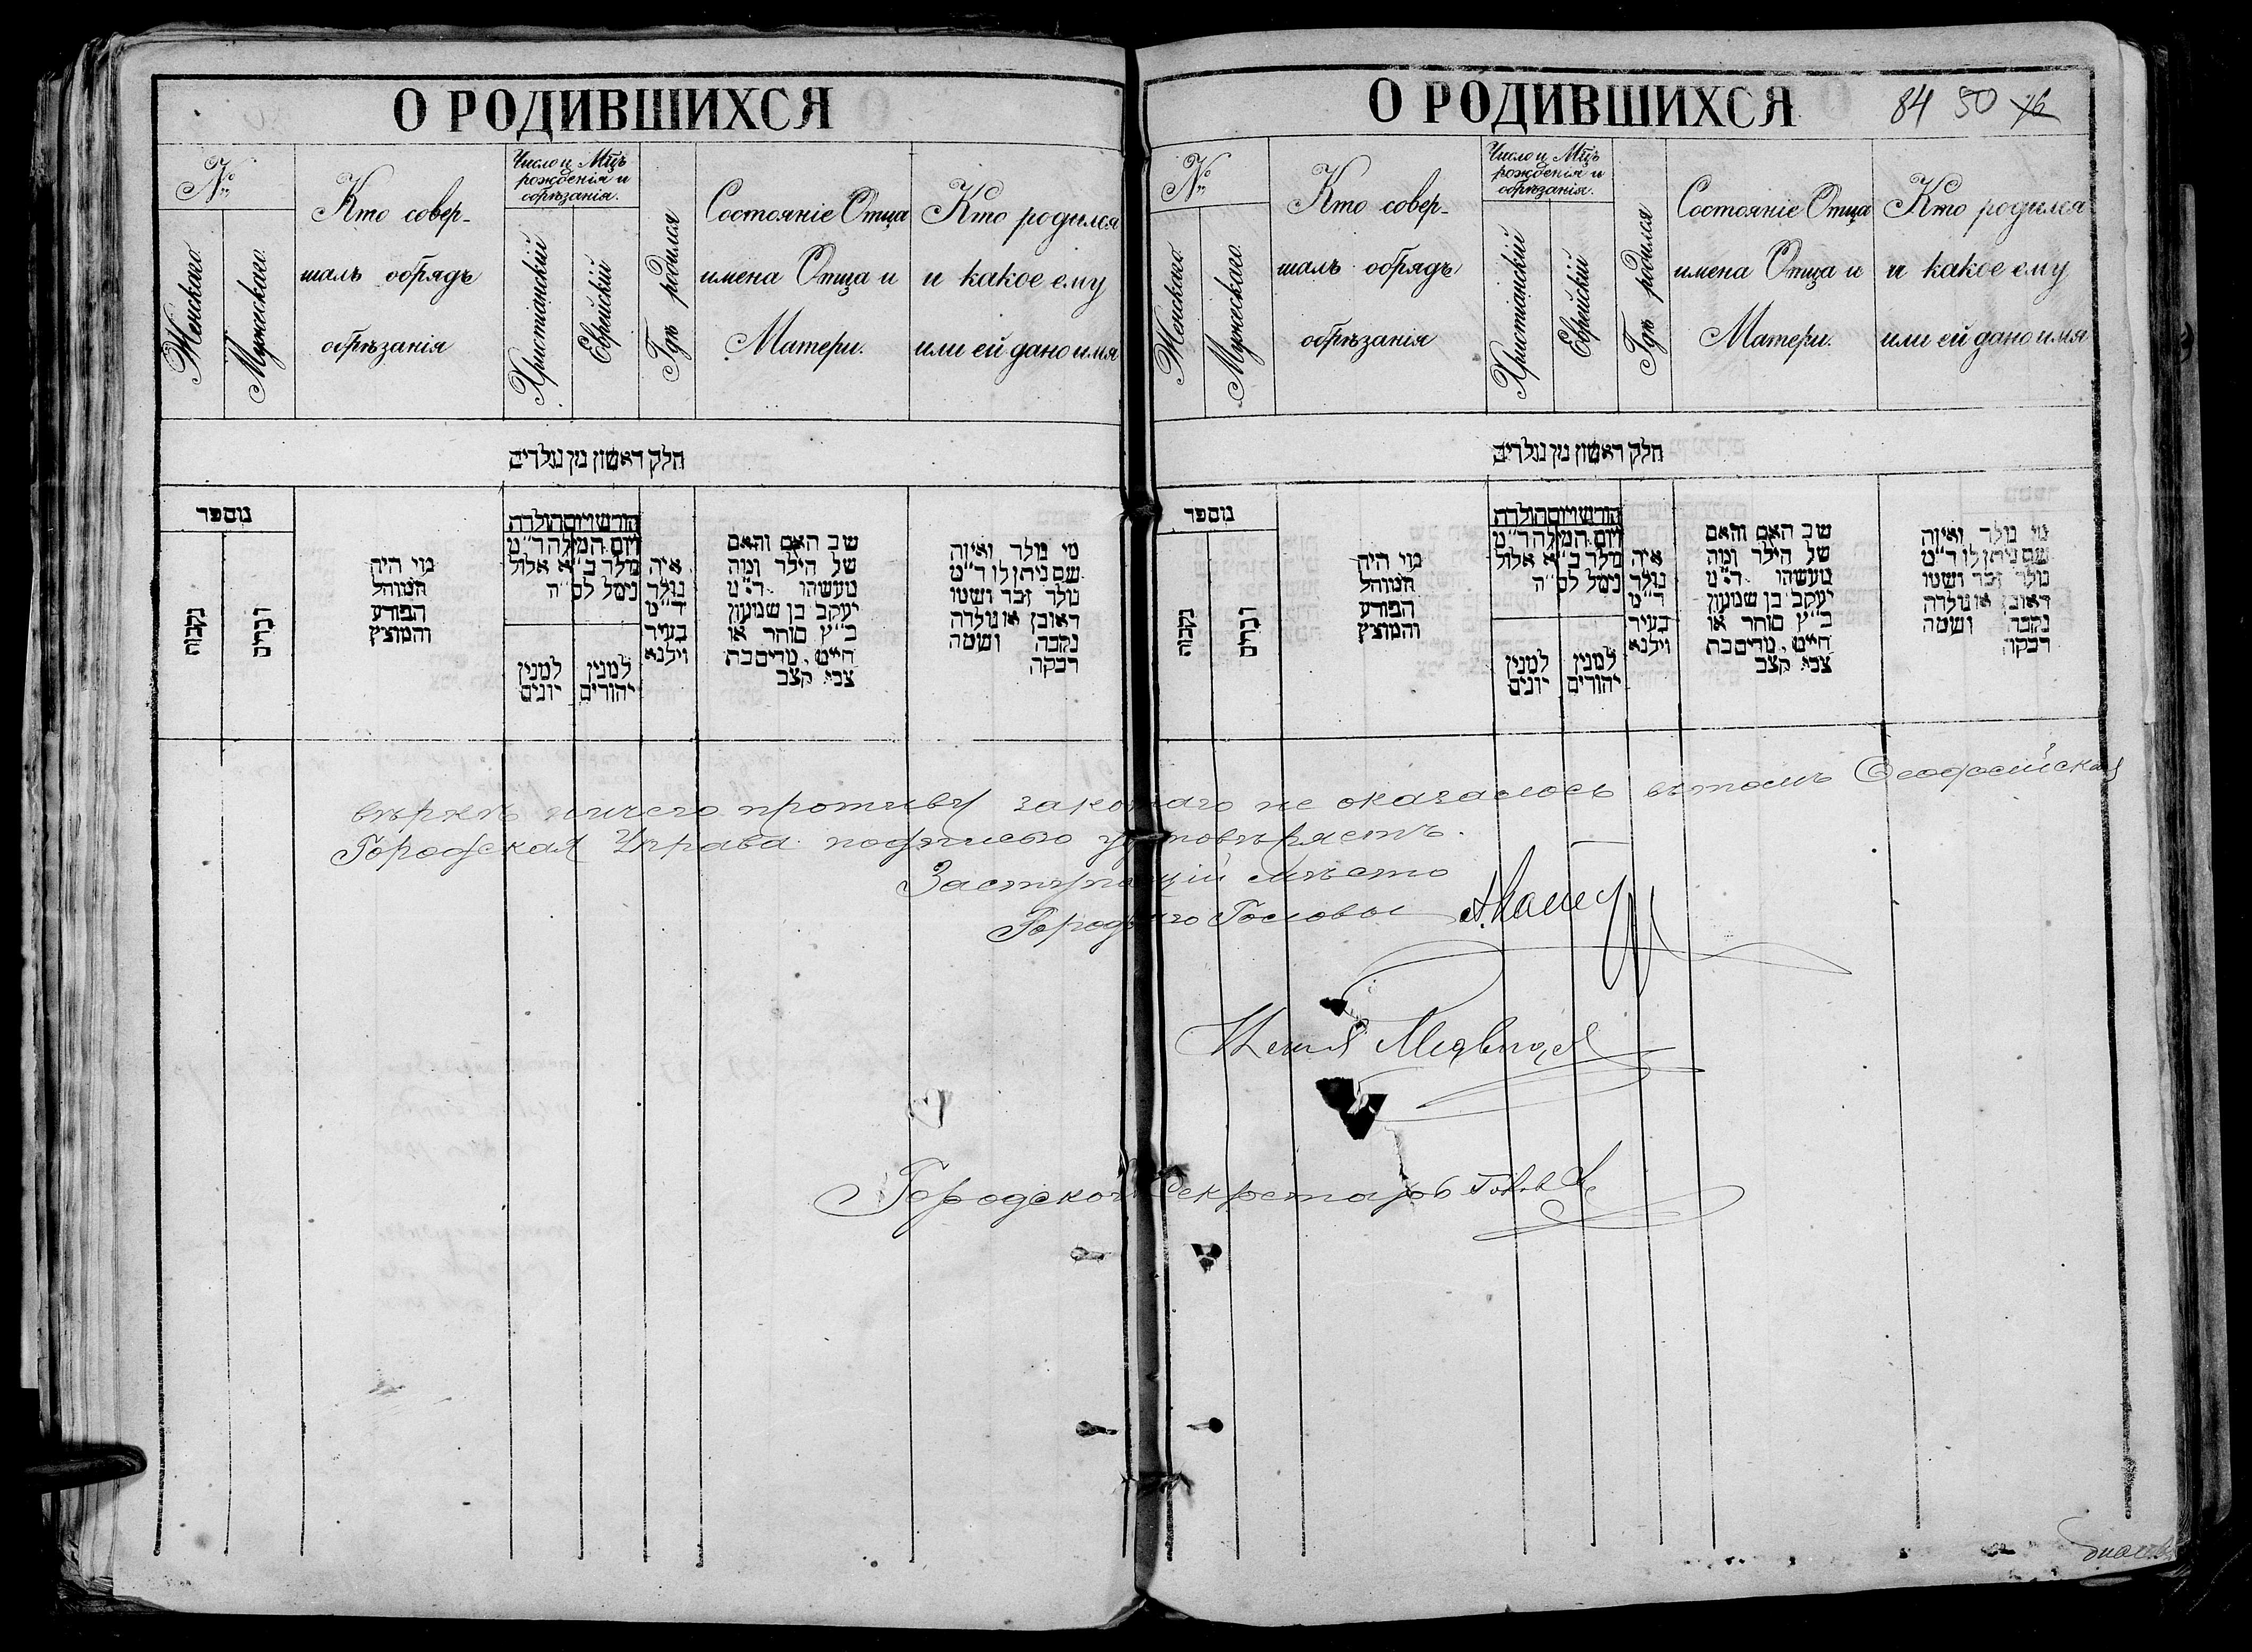 О РОДИВШИХСЯ
№
Женскаго
Мужескаго
Кто совер-
шалъ обрядъ
обрѣзанія
Число и Мцъ
рожденія и
обрѣзанія.
Христіанскій
Еврейскій
Гдѣ родился
Состояніе Отца
имена Отца и
Матери.
Кто родился
и какое ему
или ей дано имя
חלק ראשון מן נולדים
מספר
נקבות
זכרים
מי היה
המוהל
הפורע
והמוצץ
חודש ויום הולדת
ויום המילה ד״מ
מלר ב״א אלול
נימל לס״ה
למנין
יונים
למנין
יהודים
איה
נולד
ד״מ
בעיר
וילנא
שב האם והאם
של הילד ומה
מעשהו ד״מ
יעקב בן שמעון
כ״ץ סוחר או
חייט, מרים בת
צבי קצב
מי נולד ואיזה
שם ניתן לו ד״מ
נולד זכר ושמו
ראובן או נולדה
נקבה ושמה
רבקה
О РОДИВШИХСЯ
84 50 76
№
Женскаго
Мужескаго
Кто совер-
шалъ обрядъ
обрѣзанія
Число и Мцъ
рожденія и
обрѣзанія.
Христіанскій
Еврейскій
Гдѣ родился
Состояніе Отца
имена Отца и
Матери.
Кто родился
и какое ему
или ей дано имя
חלק ראשון מן נולדים
מספר
נקבות
זכרים
מי היה
המוהל
הפורע
והמוצץ
חודש ויום הולדת
ויום המילה ד״מ
מלר ב״א אלול
נימל לס״ה
למנין
יונים
למנין
יהודים
איה
נולד
ד״מ
בעיר
וילנא
שב האם והאם
של הילד ומה
מעשהו ד״מ
יעקב בן שמעון
כ״ץ סוחר או
חייט, מרים בת
צבי קצב
מי נולד ואיזה
שם ניתן לו ד״מ
נולד זכר ושמו
ראובן או נולדה
נקבה ושמה
רבקה
вѣркѣ ничего противу законнаго не оказалось въ томъ Феодосійская
Городская Управа подписью удостовѣряетъ.
Заступающій мѣсто
Городскаго Головы
Городской Секретарь